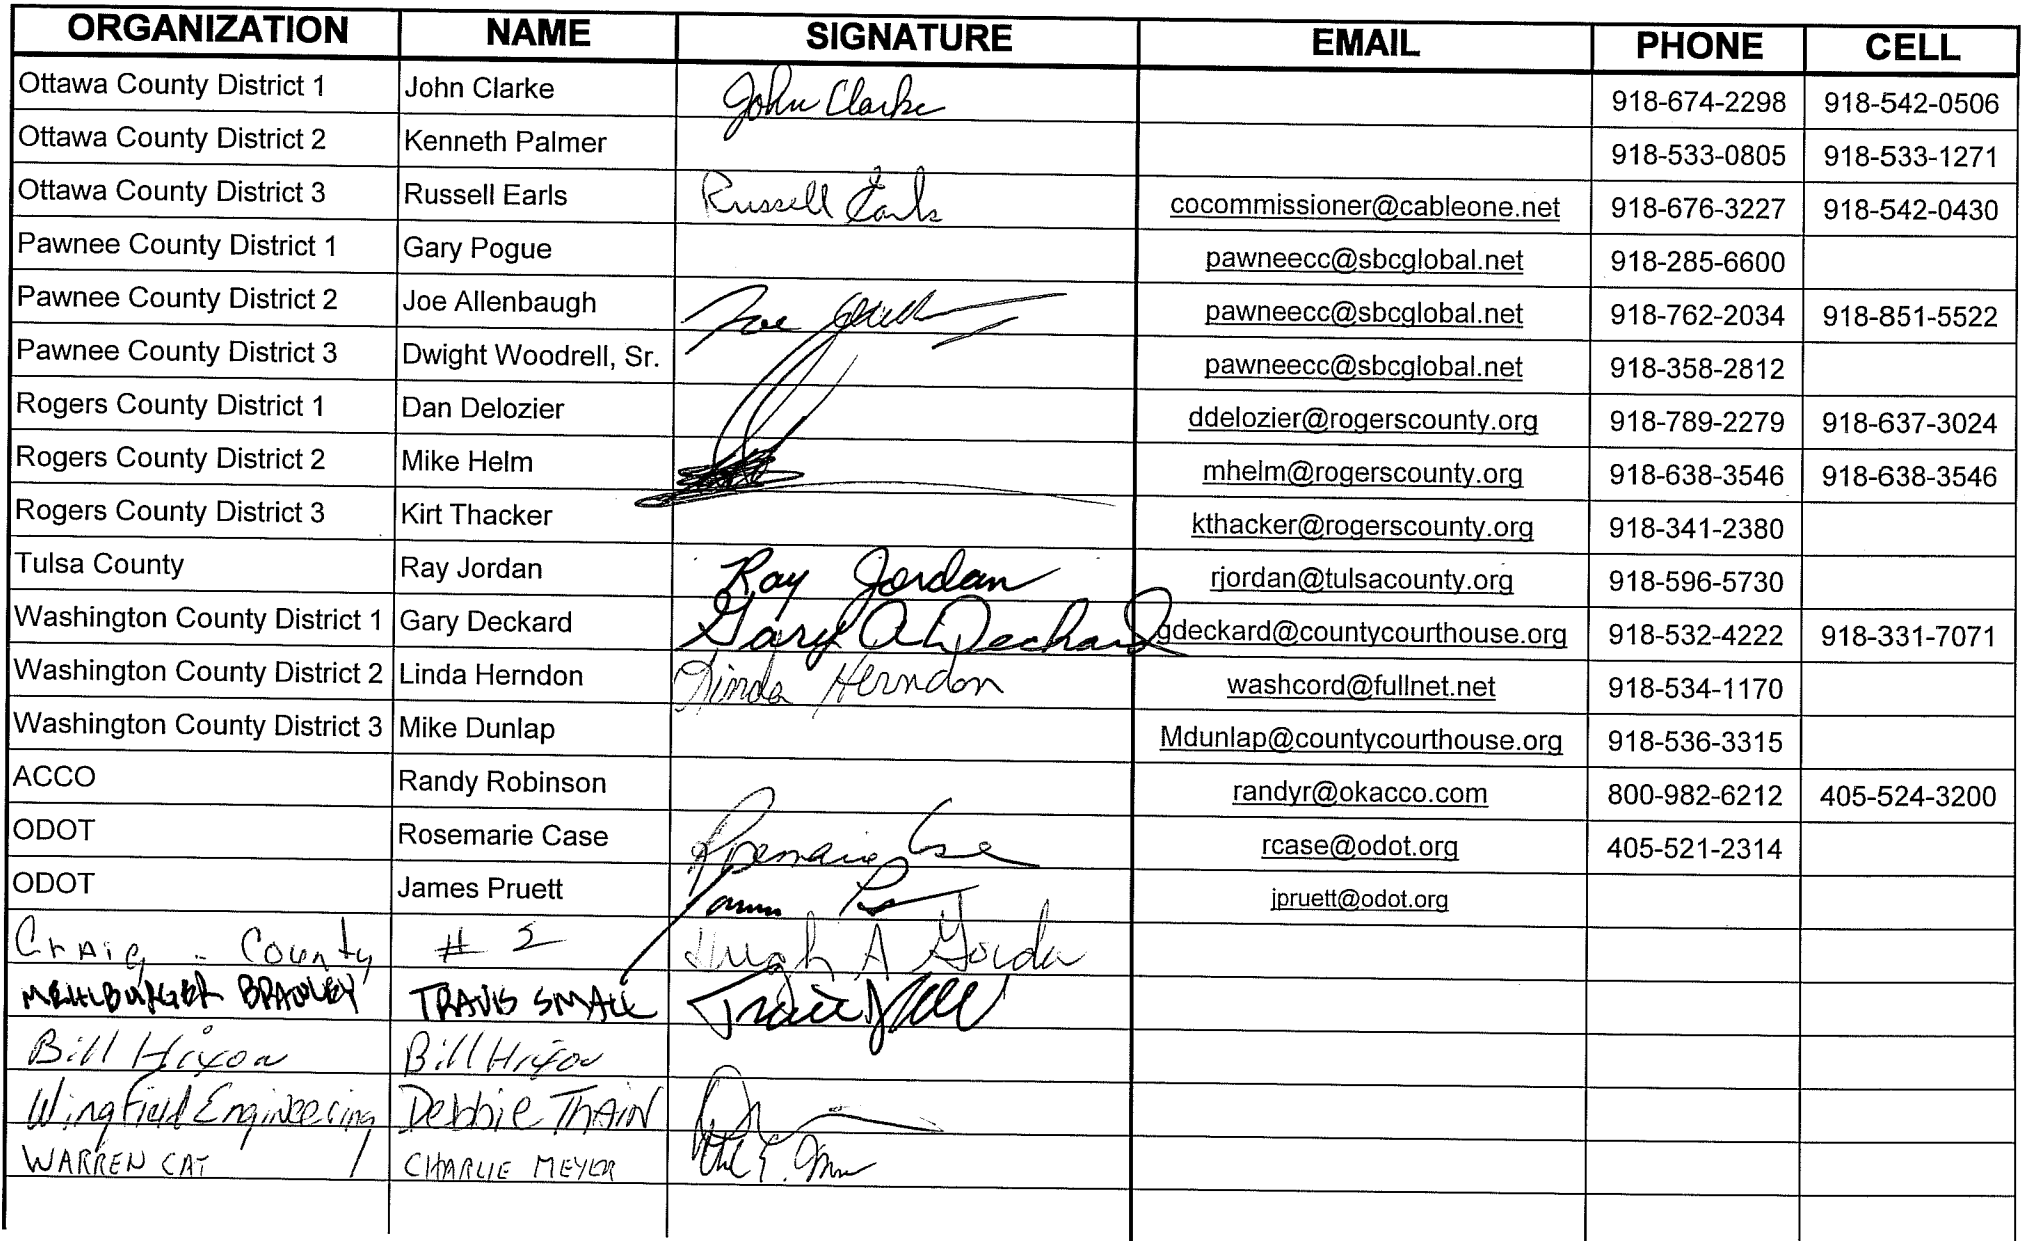 ORGANIZATION NAME SIGNATURE EMAIL PHONE CELL
Ottawa County District 1 John Clarke John Clarke 918-674-2298 918-542-0506
Ottawa County District 2 Kenneth Palmer 918-533-0805 918-533-1271
Ottawa County District 3 Russell Earls Russell Earls cocommissioner@cableone.net 918-676-3227 918-542-0430
Pawnee County District 1 Gary Pogue pawneecc@sbcglobal.net 918-285-6600
Pawnee County District 2 Joe Allenbaugh Joe pawneecc@sbcglobal.net 918-762-2034 918-851-5522
Pawnee County District 3 Dwight Woodrell, Sr. pawneecc@sbcglobal.net 918-358-2812
Rogers County District 1 Dan Delozier ddelozier@rogerscounty.org 918-789-2279 918-637-3024
Rogers County District 2 Mike Helm mhelm@rogerscounty.org 918-638-3546 918-638-3546
Rogers County District 3 Kirt Thacker kthacker@rogerscounty.org 918-341-2380
Tulsa County Ray Jordan Ray Jordan rjordan@tulsacounty.org 918-596-5730
Washington County District 1 Gary Deckard Gary A Deckard gdeckard@countycourthouse.org 918-532-4222 918-331-7071
Washington County District 2 Linda Herndon Linda Herndon washcord@fullnet.net 918-534-1170
Washington County District 3 Mike Dunlap Mdunlap@countycourthouse.org 918-536-3315
ACCO Randy Robinson randyr@okacco.com 800-982-6212 405-524-3200
ODOT Rosemarie Case Rosemarie Case rcase@odot.org 405-521-2314
ODOT James Pruett jpruett@odot.org
Craig - County # 2 Hugh A Gorda
MEHLBURGER BRAWLEY TRAVIS SMALL Travis Small
Bill Hixon Bill Hixon
Wingfield Engineering Debbie THAIN
WARREN CAT CHARLIE MEYER